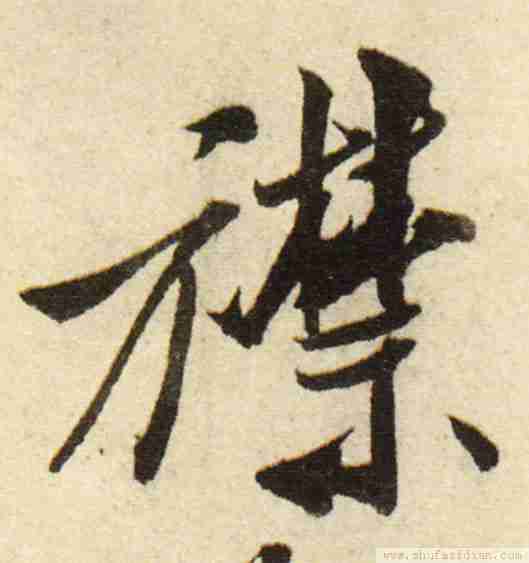 襟
www.shufazidian.com